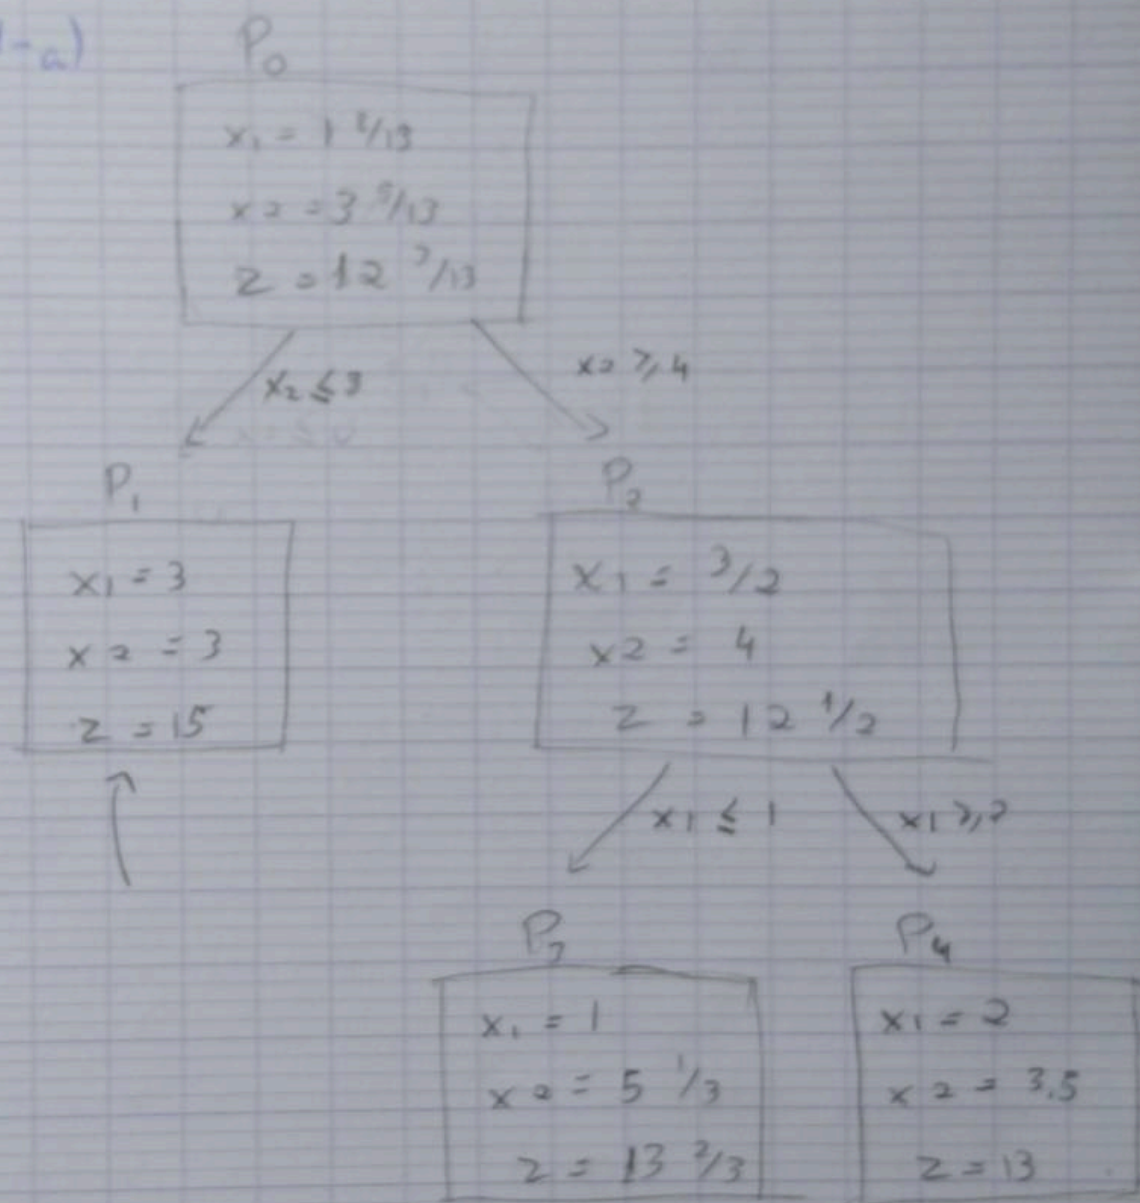 P0
x1 = 1 2/13
x2 = 3 5/13
z = 12 7/13
x2 ≤ 3
x2 ≥ 4
P1
P2
x1 = 3
x2 = 3
z = 15
x1 = 3/2
x2 = 4
z = 12 1/2
x1 ≤ 1
x1 ≥ 2
P3
P4
x1 = 1
x2 = 5 1/3
z = 13 2/3
x1 = 2
x2 = 3.5
z = 13